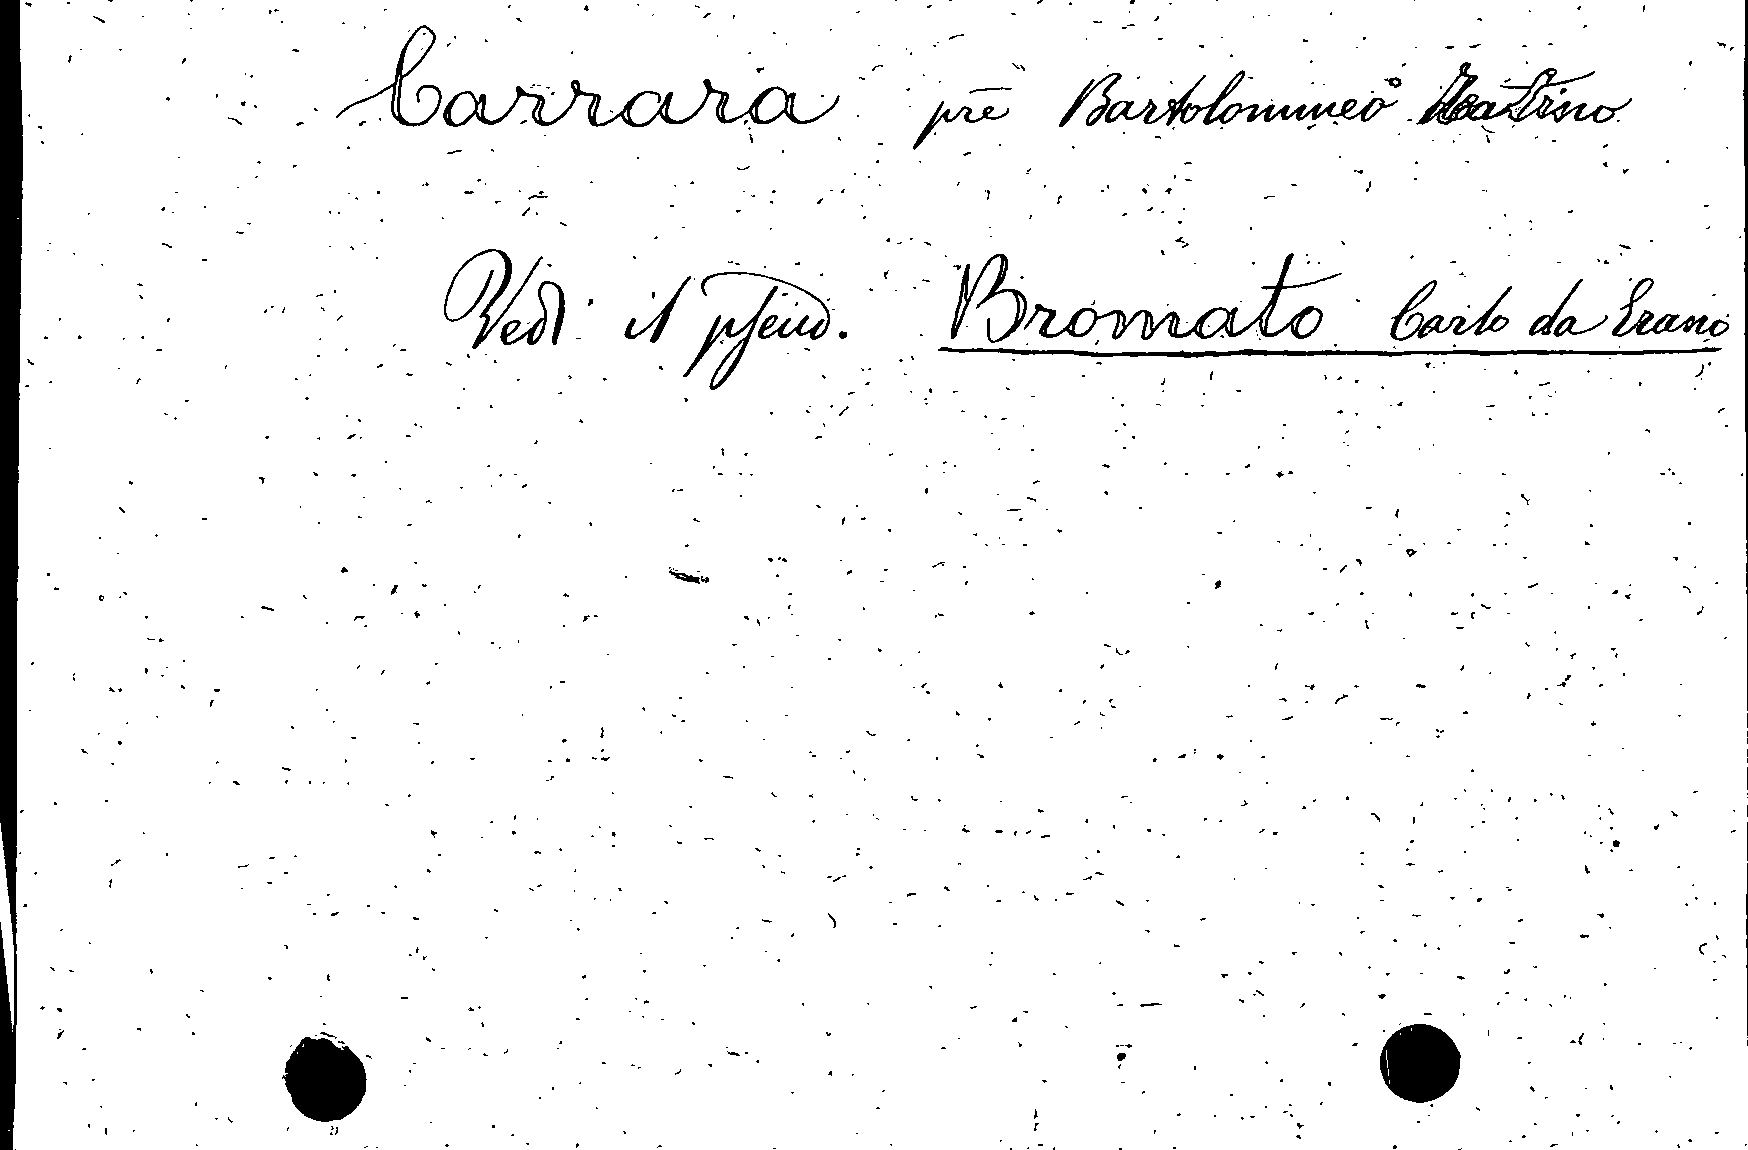 Carrara prē Bartolommeo Teatino
Vedi il pseud. Bromato Carlo da Erano